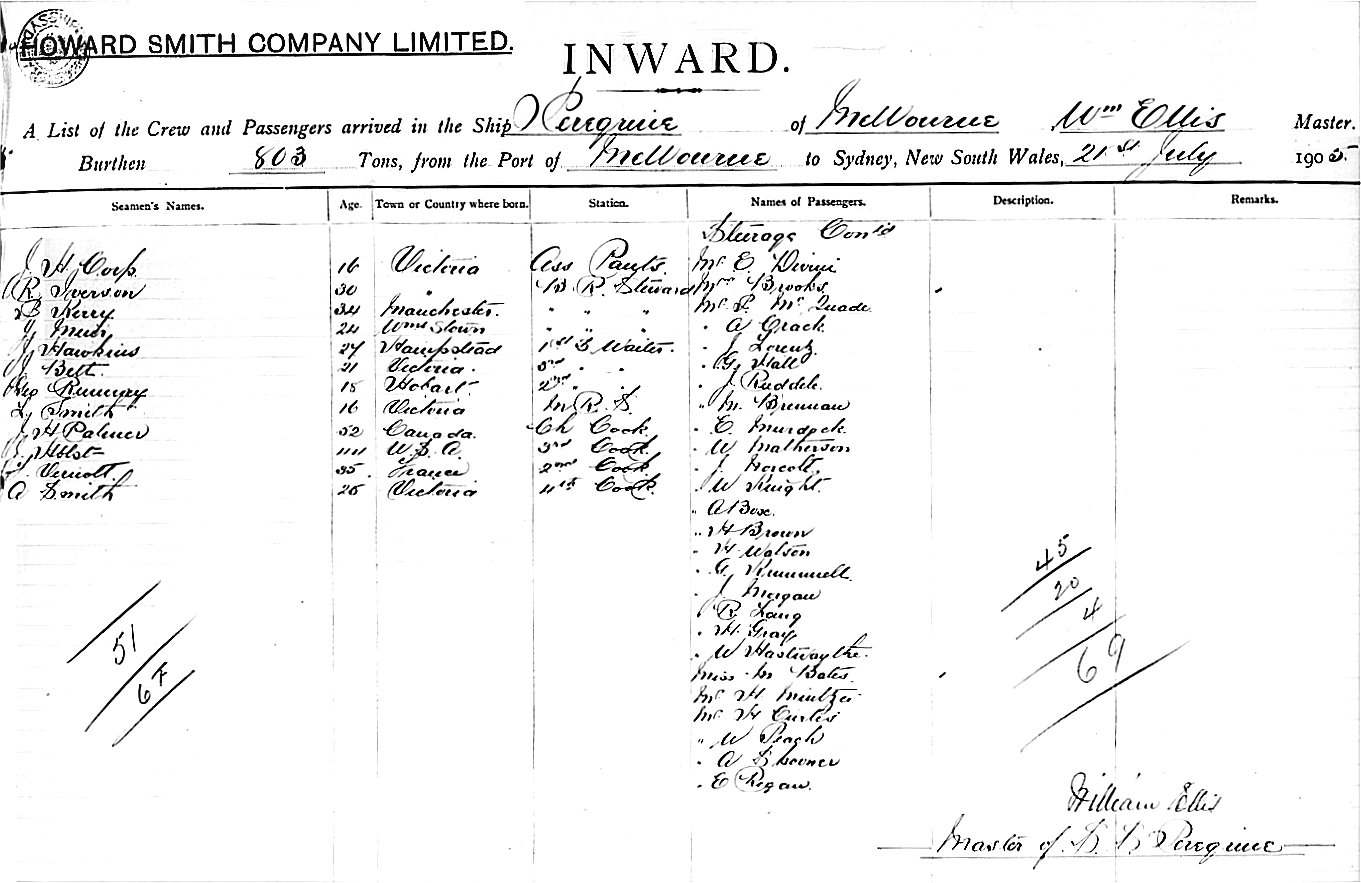 HOWARD SMITH COMPANY LIMITED.
INWARD.
A List of the Crew and Passengers arrived in the Ship Peregrine of Melbourne Wm Ellis Master.
Burthen 803 Tons, from the Port of Melbourne to Sydney, New South Wales, 21st July 1905.
Seamen's Names. Age. Town or Country where born. Station. Names of Passengers. Description. Remarks.
Steerage Con'd
J H Corp. 16 Victoria Ass Pants. Mr E
R Iverson 30 " B. R. Steward Mrs Brooks
Kerry 34 Manchester. " " " Mr P. McQuade
24 Wms Town " " " " A
J Hawkins 27 Hampstead 1st S Waiter. " J Lorenz
J Bett. 21 Victoria. 3rd " " " G Hall
Geo 18 Hobart. 2nd " " " J Ruddek.
L Smith 16 Victoria M. R. S. " M. Brennan
J H Palmer 52 Canada. Ch Cook " E
J. Holst 44 U.S.A. 3rd Cook. " W Matherson
35. France 2nd Cook. " J.
A Smith 26 Victoria 4th Cook. " W Knight.
" A Box.
" H Brown
" H Watson
" G
" J Morgan
" R Lang
" H. Gray
" W
Miss M Bates.
Mr H
Mr H Curtis
" W Peach
" A
" E Regan.
45
20
4
69
51
67
William Ellis
Master of S. S. Peregrine